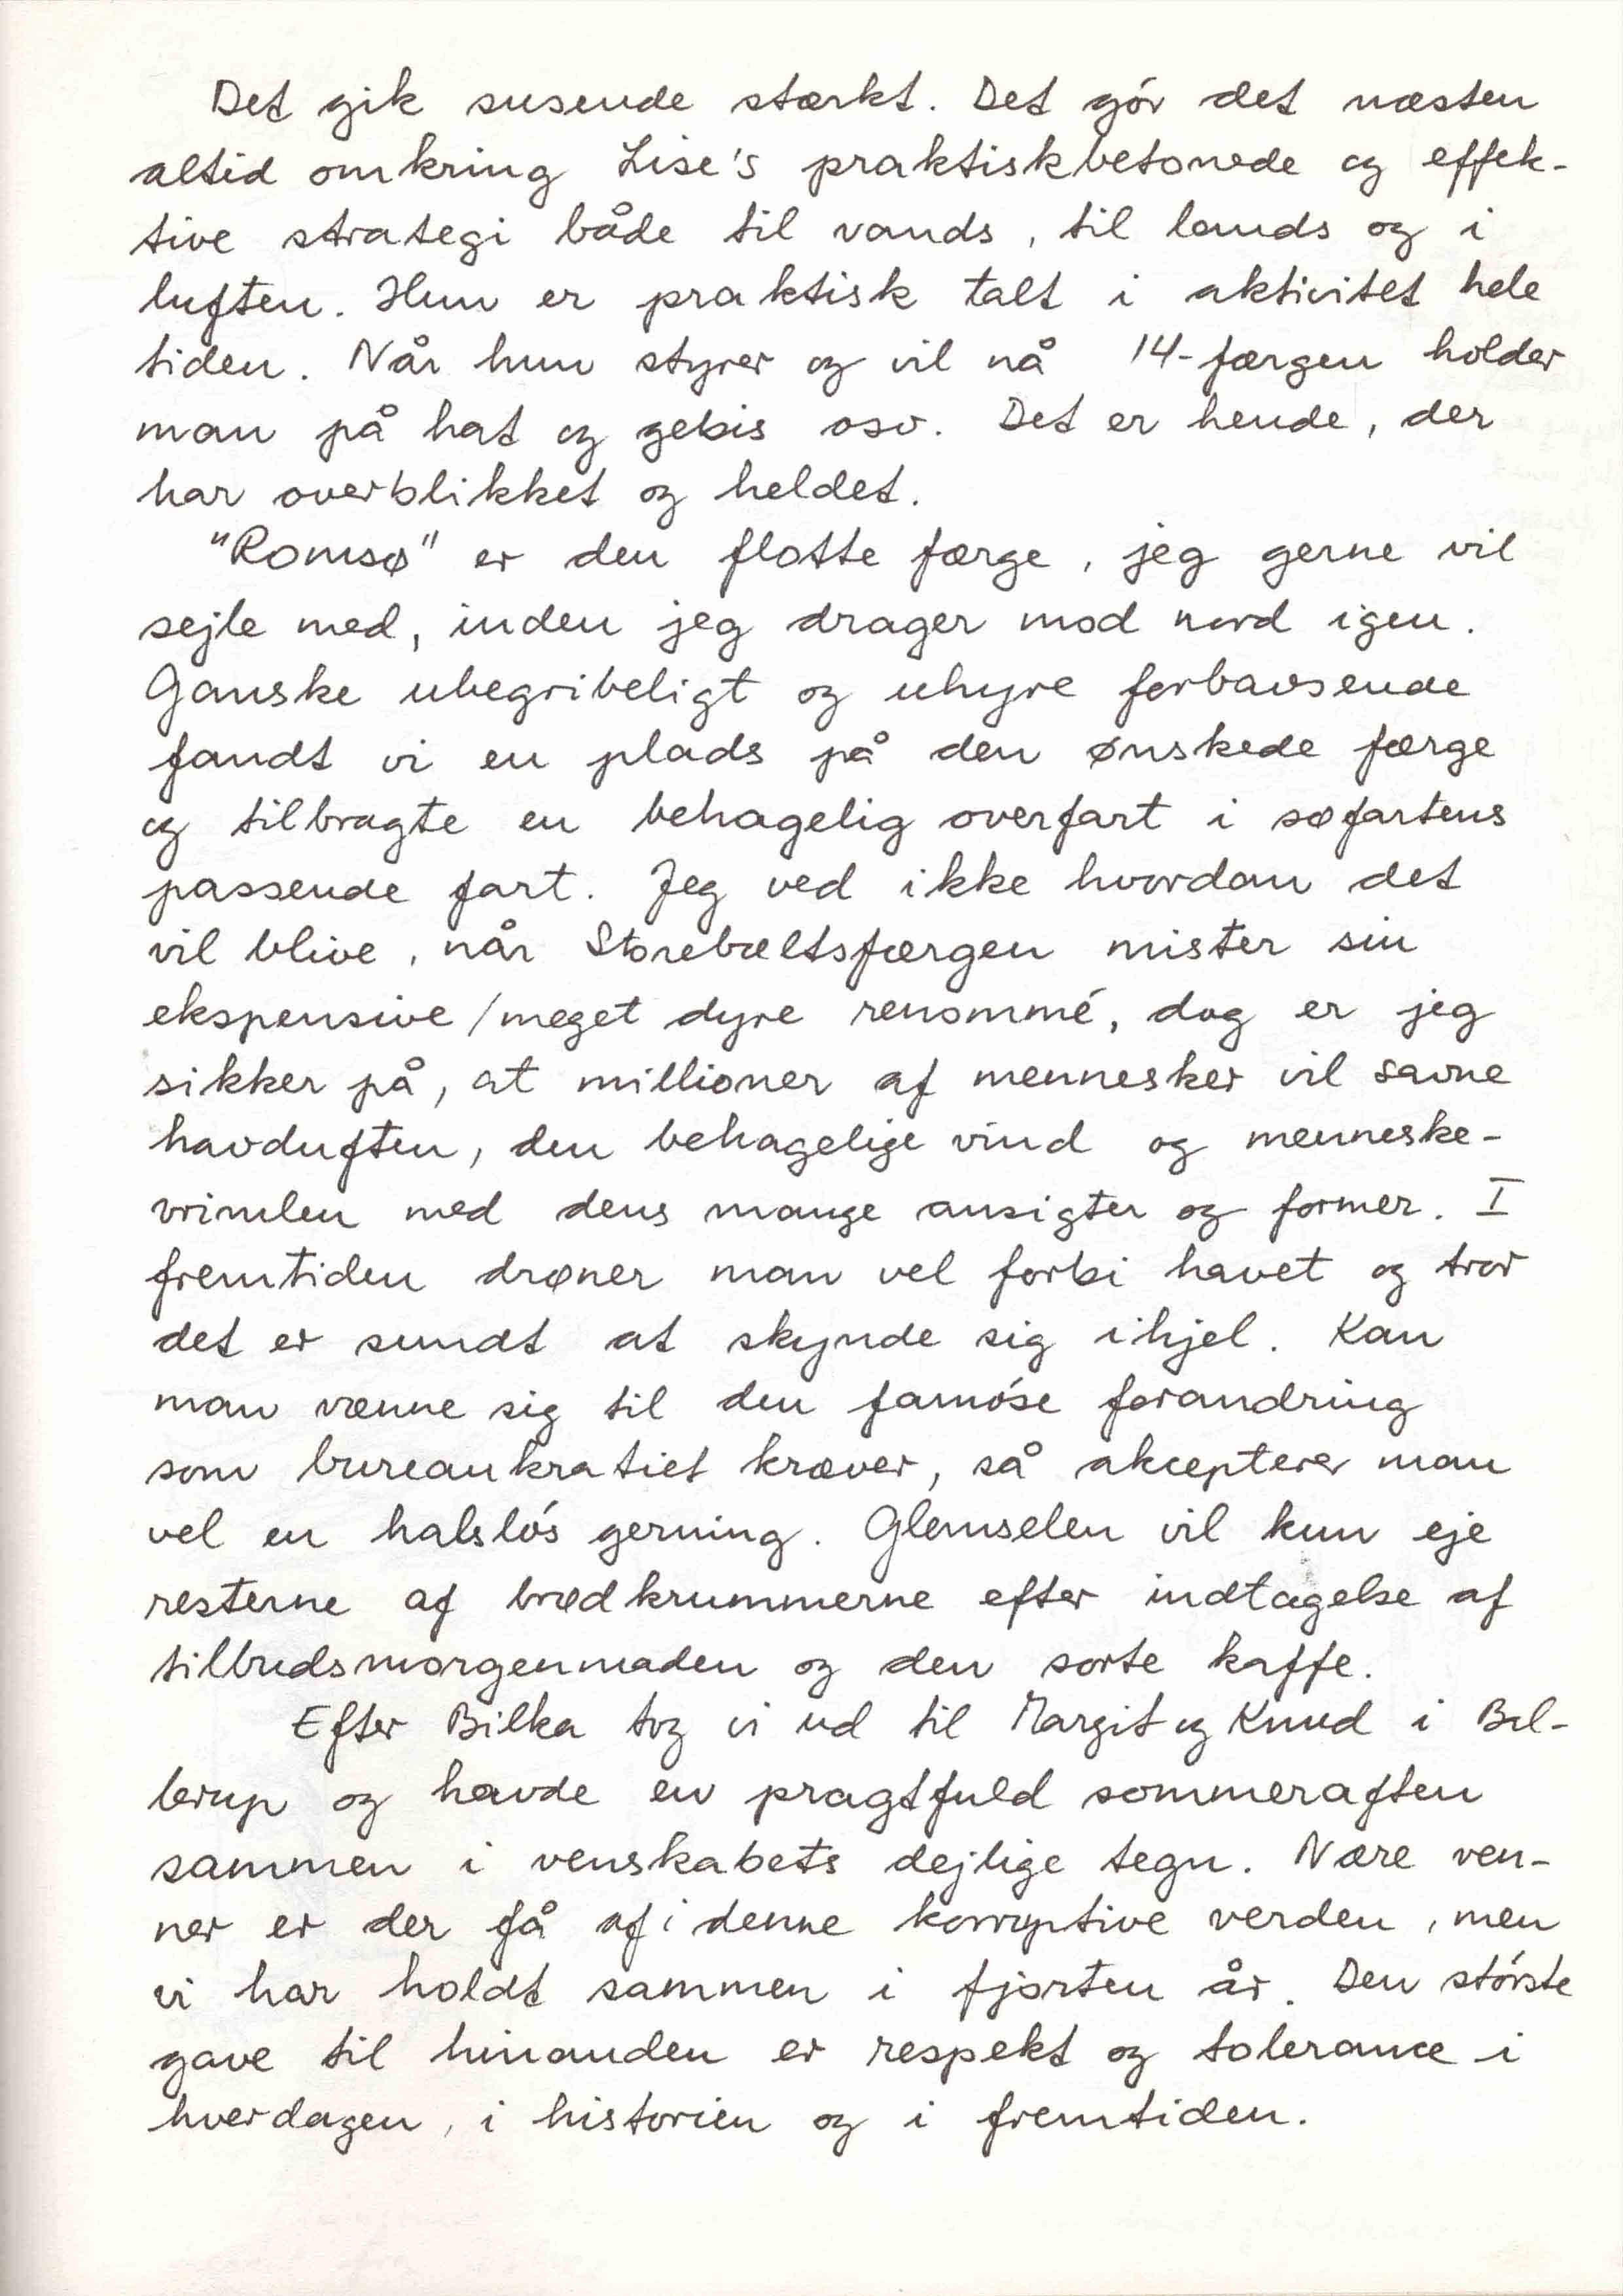 Det gik susende stærkt. Det gör det næsten
altid omkring Lise's praktiskbetonede og effek-
tive strategi både til vands, til lands og i
luften. Hun er praktisk talt i aktivitet hele
tiden. Når hun styrer og vil nå 14-færgen holder
man på hat og gebis osv. Det er hende, der
har overblikket og heldet.
"Romsø" er den flotte færge, jeg gerne vil
sejle med, inden jeg drager mod nord igen.
Ganske ubegribeligt og uhyre forbavsende
fandt vi en plads på den ønskede færge
og tilbragte en behagelig overfart i søfartens
passende fart. Jeg ved ikke hvordan det
vil blive, når Storebæltsfærgen mister sin
ekspensive/meget dyre renommé, dog er jeg
sikker på, at millioner af mennesker vil savne
havduften, den behagelige vind og menneske-
vrimlen med dens mange ansigter og former. I
fremtiden drøner man vel forbi havet og tror
det er sundt at skynde sig ihjel. Kan
man vænne sig til den famöse forandring
som bureaukratiet kræver, så accepterer man
vel en halslös gerning. Glemselen vil kun eje
resterne af brødkrummerne efter indtagelse af
tilbudsmorgenmaden og den sorte kaffe.
Efter Bilka tog vi ud til Margit og Knud i Bel-
lerup og havde en pragtfuld sommeraften
sammen i venskabets dejlige tegn. Nære ven-
ner er der få af i denne korruptive verden, men
vi har holdt sammen i fjorten år. Den störste
gave til hinanden er respekt og tolerance i
hverdagen, i historien og i fremtiden.